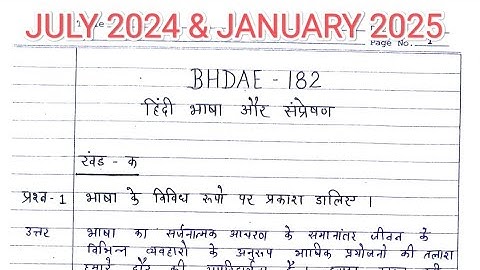 JULY 2024 & JANUARY 2025
Page No. 1
BHDAE - 182
हिंदी भाषा और संप्रेषण
खंड - क
प्रश्न - 1 भाषा के विविध रूपो पर प्रकाश डालिए ।
उत्तर भाषा का सर्जनात्मक आचरण के समानांतर जीवन के
विभिन्न व्यवहारो के अनुरूप भाषिक प्रयोजनो की तलाश
हमारे दौर की